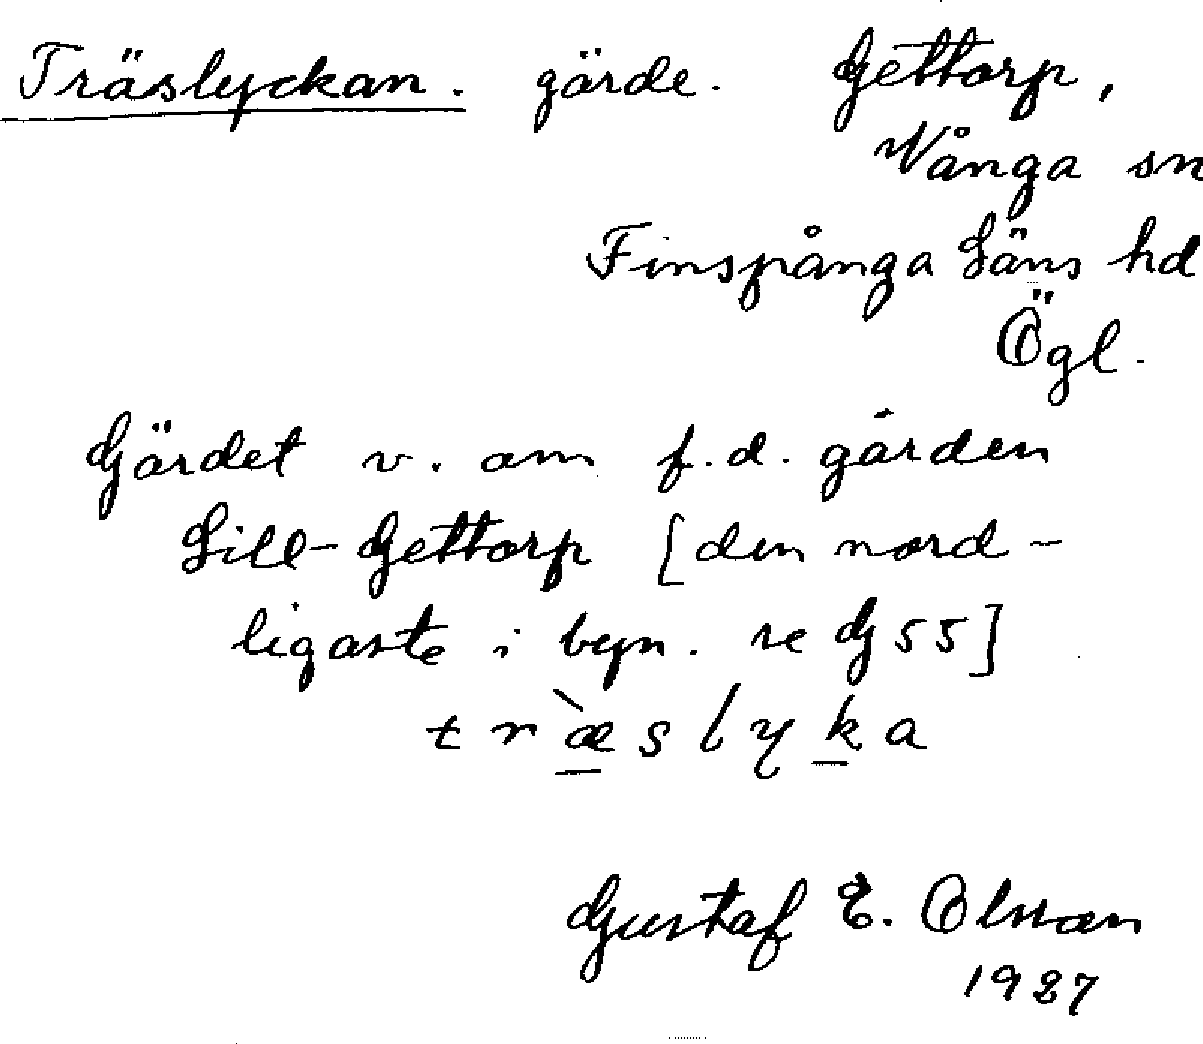 Träslyckan. gärde. Gettorp,
Vånga sn
Finspånga Läns hd
Ögl.
Gärdet v. om f.d. gården
Lill-Gettorp [den nord-
ligaste i byn. se G 55]
træ̀slyka
Gustaf E. Olsson
1927